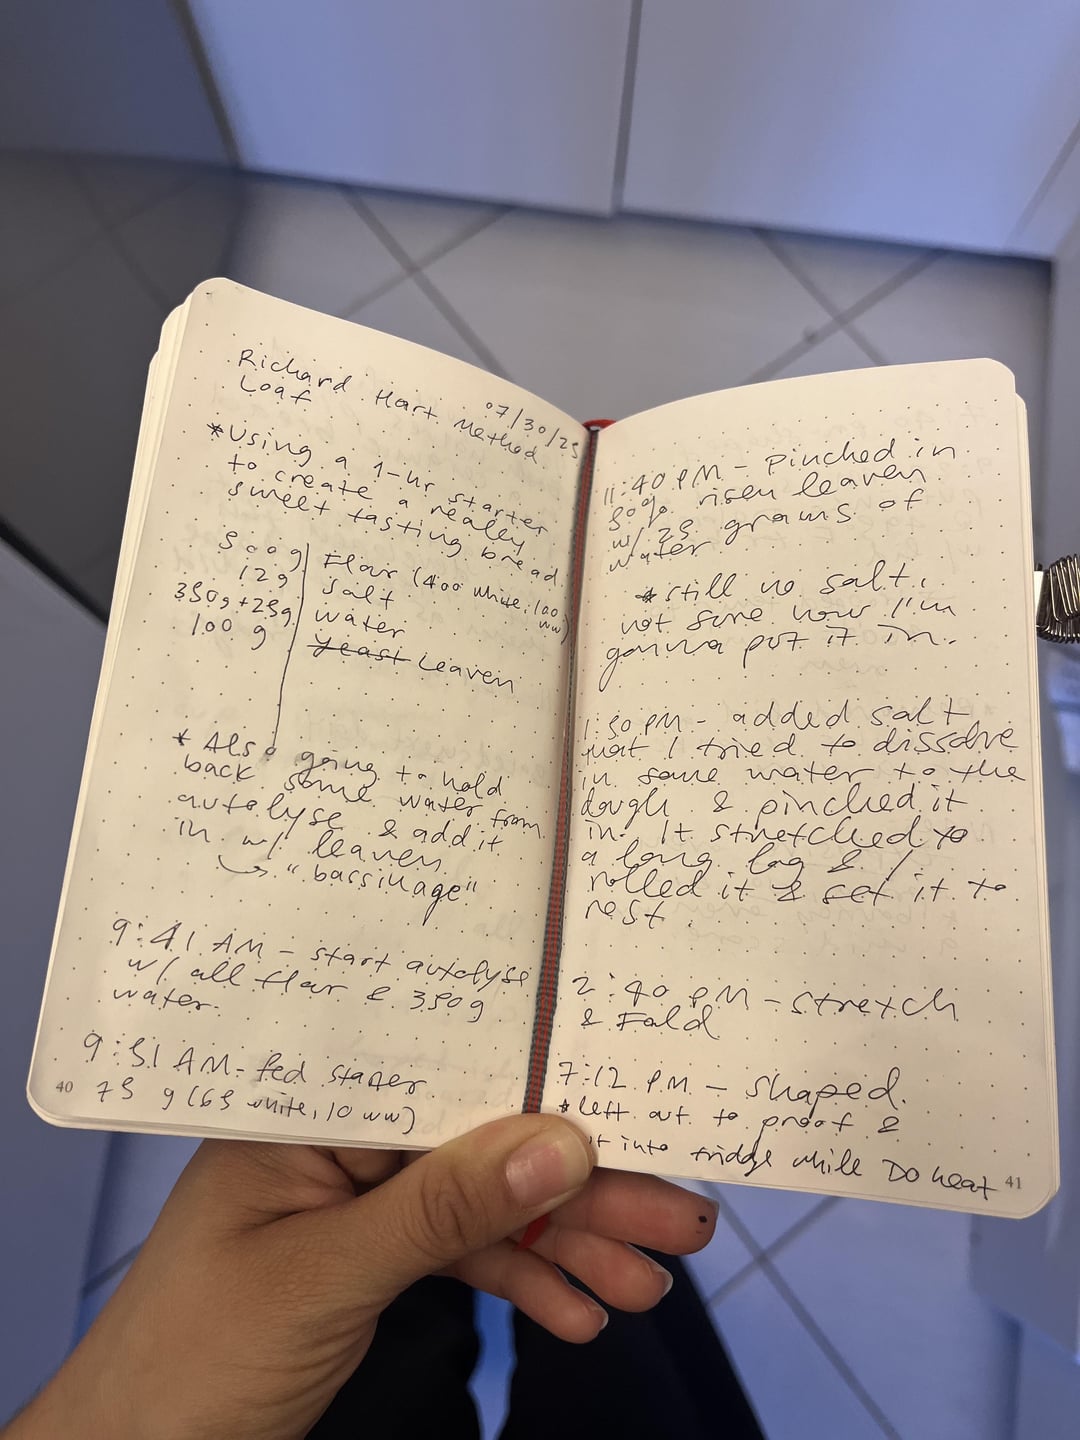 Richard Hart Method
Loaf
07/30/25
*Using a 1-hr starter
to create a really
sweet tasting bread.
500g | Flour (400 white, 100 ww)
12g | Salt
350g+25g | water
100 g | yeast Leaven
* Also going to hold
back some water from
autolyse & add it
in w/ leaven
→ "bassinage"
9:41 AM - start autolyse
w/ all flour & 350g
water.
9:51 AM - fed starter
75 g (65 white, 10 ww)
40
11:40 PM - Pinched in
50% risen leaven
w/ 25 grams of
water
*still no salt,
not sure how I'm
gonna put it in.
1:50 PM - added salt
that I tried to dissolve
in some water to the
dough & pinched it
in. It stretched to
a long log & I
rolled it & set it to
rest.
2:40 PM - stretch
& Fold
7:12 PM - shaped.
*left out to proof &
into fridge while DO heat
41